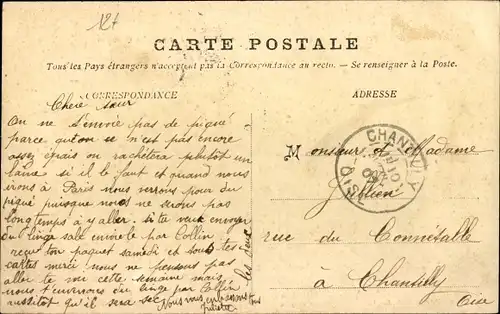 12+
CARTE POSTALE
Tous les Pays étrangers n'acceptent pas la Correspondance au recto. — Se renseigner à la Poste.
CORRESPONDANCE
ADRESSE
Chère sœur
On ne s'envie pas de piqué
parce qu'on se n'est pas encore
assez épais on rachètera plutôt un
laine si il le faut et quand nous
irons à Paris nous verrons pour du
piqué puisque nous ne serons pas
longtemps à y aller. si tu veux envoyer
du linge sale envoie le par Collin
reçu ton paquet samedi et tous tes
cartes merci nous ne pensons pas
aller te voir cette semaine mais
nous t'enverrons du linge par Collin
aussitôt qu'il sera sec
Nous vous embrassons tous
Juliette
les deux
Monsieur et Madame
Jullien
rue du Connétable
à Chantilly
Oise
CHANTILLY
OISE